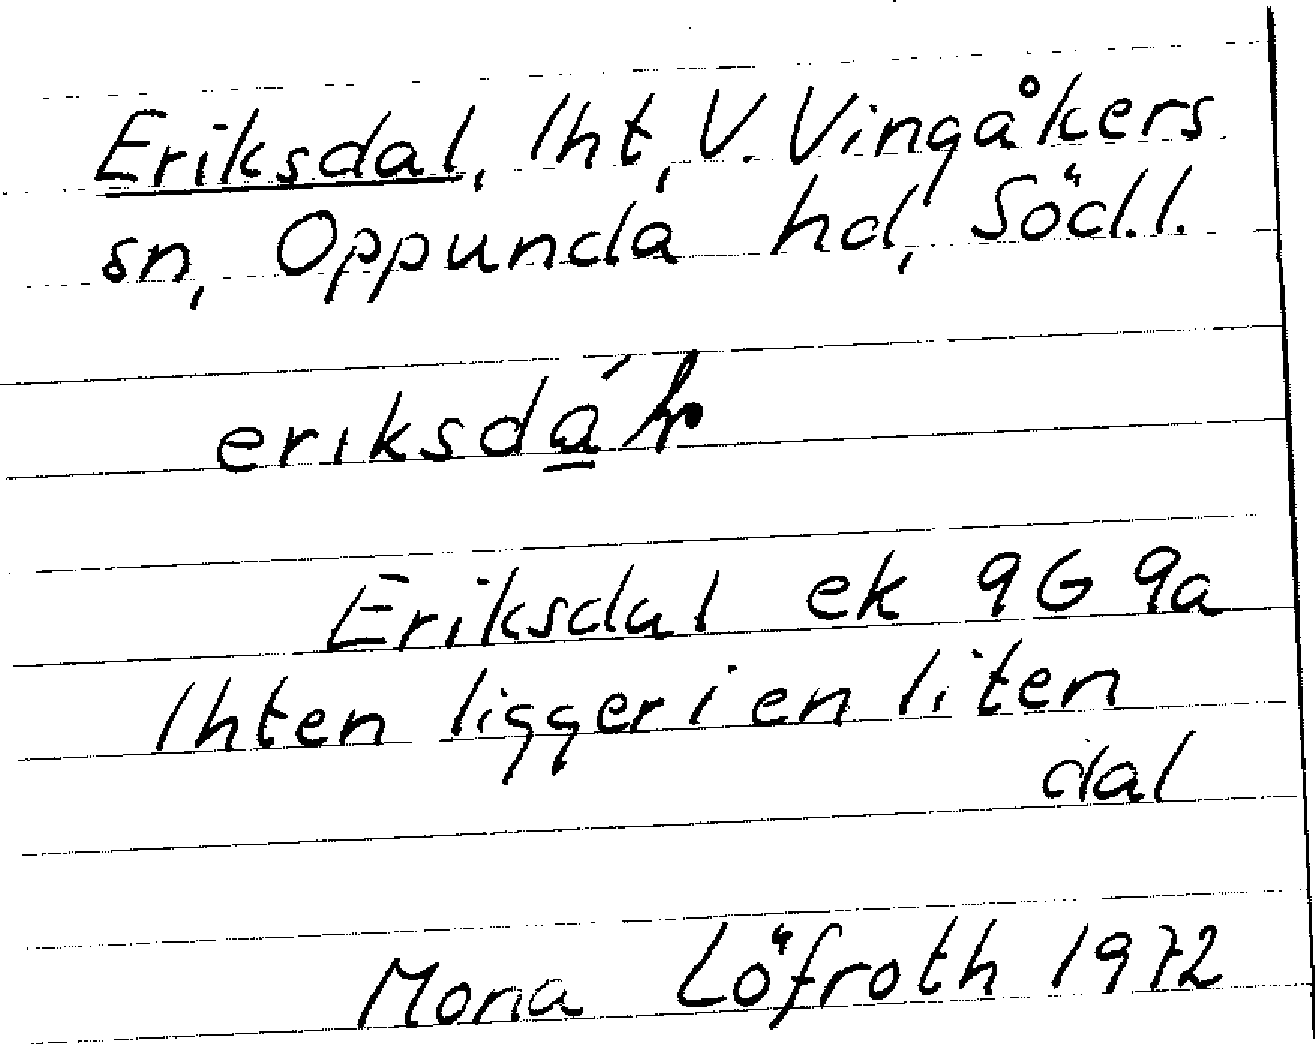 Eriksdal, lht, V. Vingåkers
sn, Oppunda hd, Södl.
Eriksdal ek 9G 9a
lhten ligger i en liten
dal
Mona Löfroth 1972